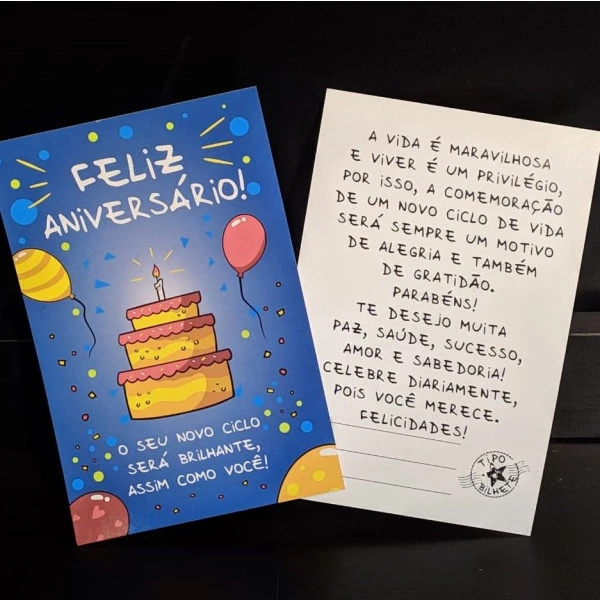 FELIZ
ANIVERSÁRIO!
O SEU NOVO CICLO
SERÁ BRILHANTE,
ASSIM COMO VOCÊ!
A VIDA É MARAVILHOSA
E VIVER É UM PRIVILÉGIO,
POR ISSO, A COMEMORAÇÃO
DE UM NOVO CICLO DE VIDA
SERÁ SEMPRE UM MOTIVO
DE ALEGRIA E TAMBÉM
DE GRATIDÃO.
PARABÉNS!
TE DESEJO MUITA
PAZ, SAÚDE, SUCESSO,
AMOR E SABEDORIA!
CELEBRE DIARIAMENTE,
POIS VOCÊ MERECE.
FELICIDADES!
TIPO
BILHETE